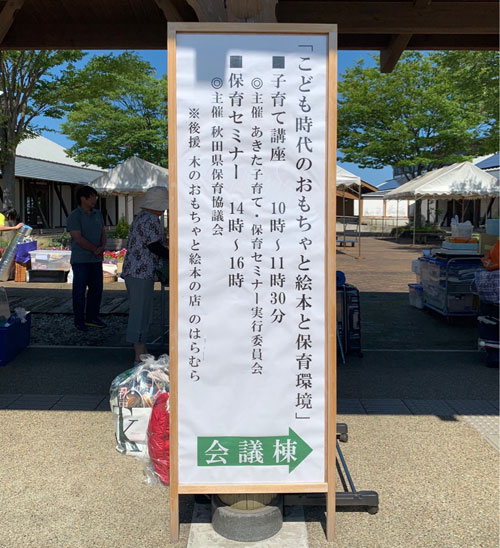 「こども時代のおもちゃと絵本と保育環境」
■子育て講座　10時～11時30分
◎主催 あきた子育て・保育セミナー実行委員会
■保育セミナー　14時～16時
◎主催 秋田県保育協議会
※後援 木のおもちゃと絵本の店 のはらむら
会議棟